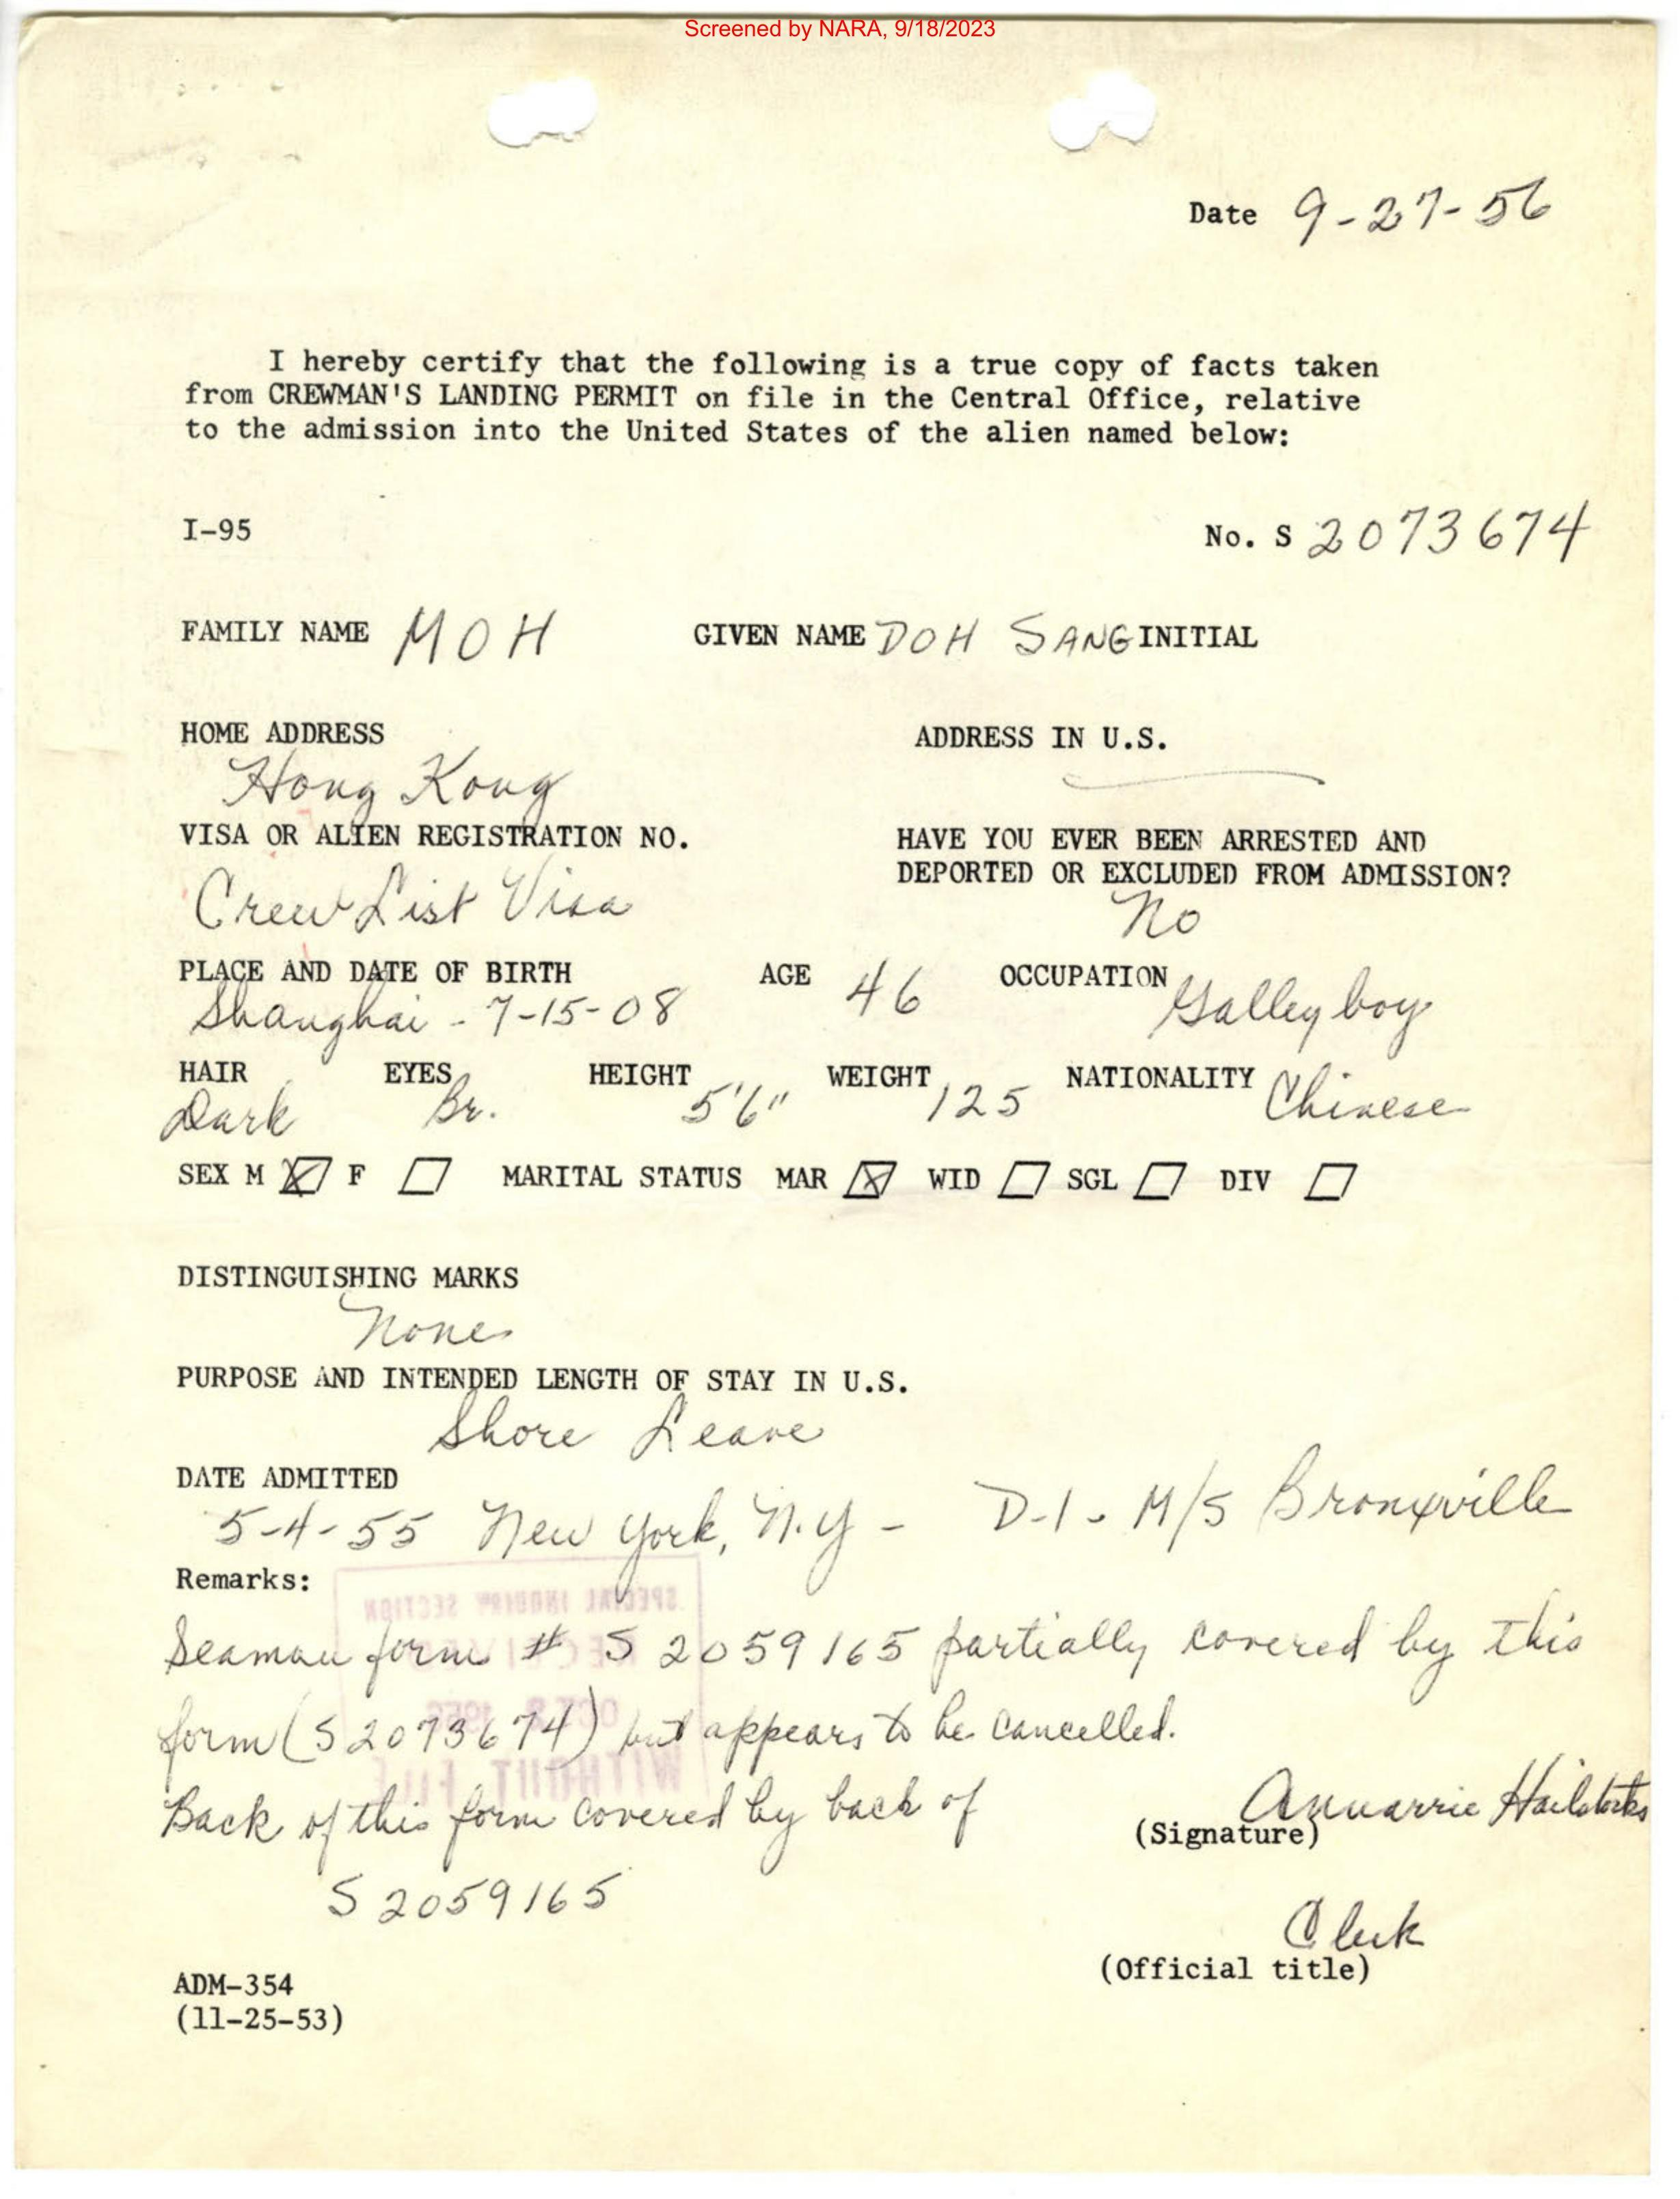 Screened by NARA, 9/18/2023
Date 9-27-56
I hereby certify that the following is a true copy of facts taken
from CREWMAN'S LANDING PERMIT on file in the Central Office, relative
to the admission into the United States of the alien named below:
I-95 No. S 2073674
FAMILY NAME MOH GIVEN NAME DOH SANG INITIAL
HOME ADDRESS ADDRESS IN U.S.
Hong Kong
VISA OR ALIEN REGISTRATION NO. HAVE YOU EVER BEEN ARRESTED AND
DEPORTED OR EXCLUDED FROM ADMISSION?
Crew List Visa No
PLACE AND DATE OF BIRTH AGE 46 OCCUPATION
Shanghai - 7-15-08 Galley boy
HAIR EYES HEIGHT WEIGHT NATIONALITY
Dark Br. 5'6" 125 Chinese
SEX M F MARITAL STATUS MAR WID SGL DIV
DISTINGUISHING MARKS
None
PURPOSE AND INTENDED LENGTH OF STAY IN U.S.
Shore Leave
DATE ADMITTED
5-4-55 New York, N.Y - D-1 - M/S Bronxville
Remarks:
SPECIAL INQUIRY SECTION
Seaman form # S 2059165 partially covered by this
RECEIVED
form (S2073674) but appears to be cancelled.
WITHOUT FILE
Back of this form covered by back of
S 2059165
Annarrie Hailstorks
(Signature)
Clerk
(Official title)
ADM-354
(11-25-53)